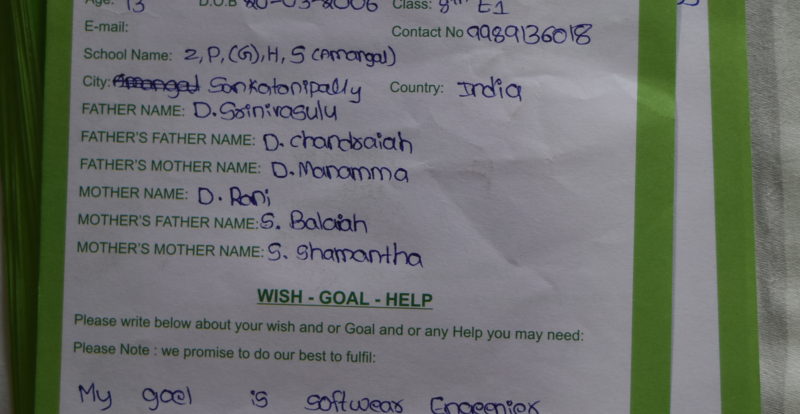 Age: 13 D.O.B 20-03-2006 Class: 8th E1
E-mail:
Contact No 9989136018
School Name: Z, P, (G), H, S (Amangal)
City: Sankatonipally Country: India
FATHER NAME: D. Srinivasulu
FATHER'S FATHER NAME: D. chandraiah
FATHER'S MOTHER NAME: D. Manamma
MOTHER NAME: D. Rani
MOTHER'S FATHER NAME: S. Balaiah
MOTHER'S MOTHER NAME: S. Shamantha
WISH - GOAL - HELP
Please write below about your wish and or Goal and or any Help you may need:
Please Note : we promise to do our best to fulfil:
My goal is softwear Engeenier